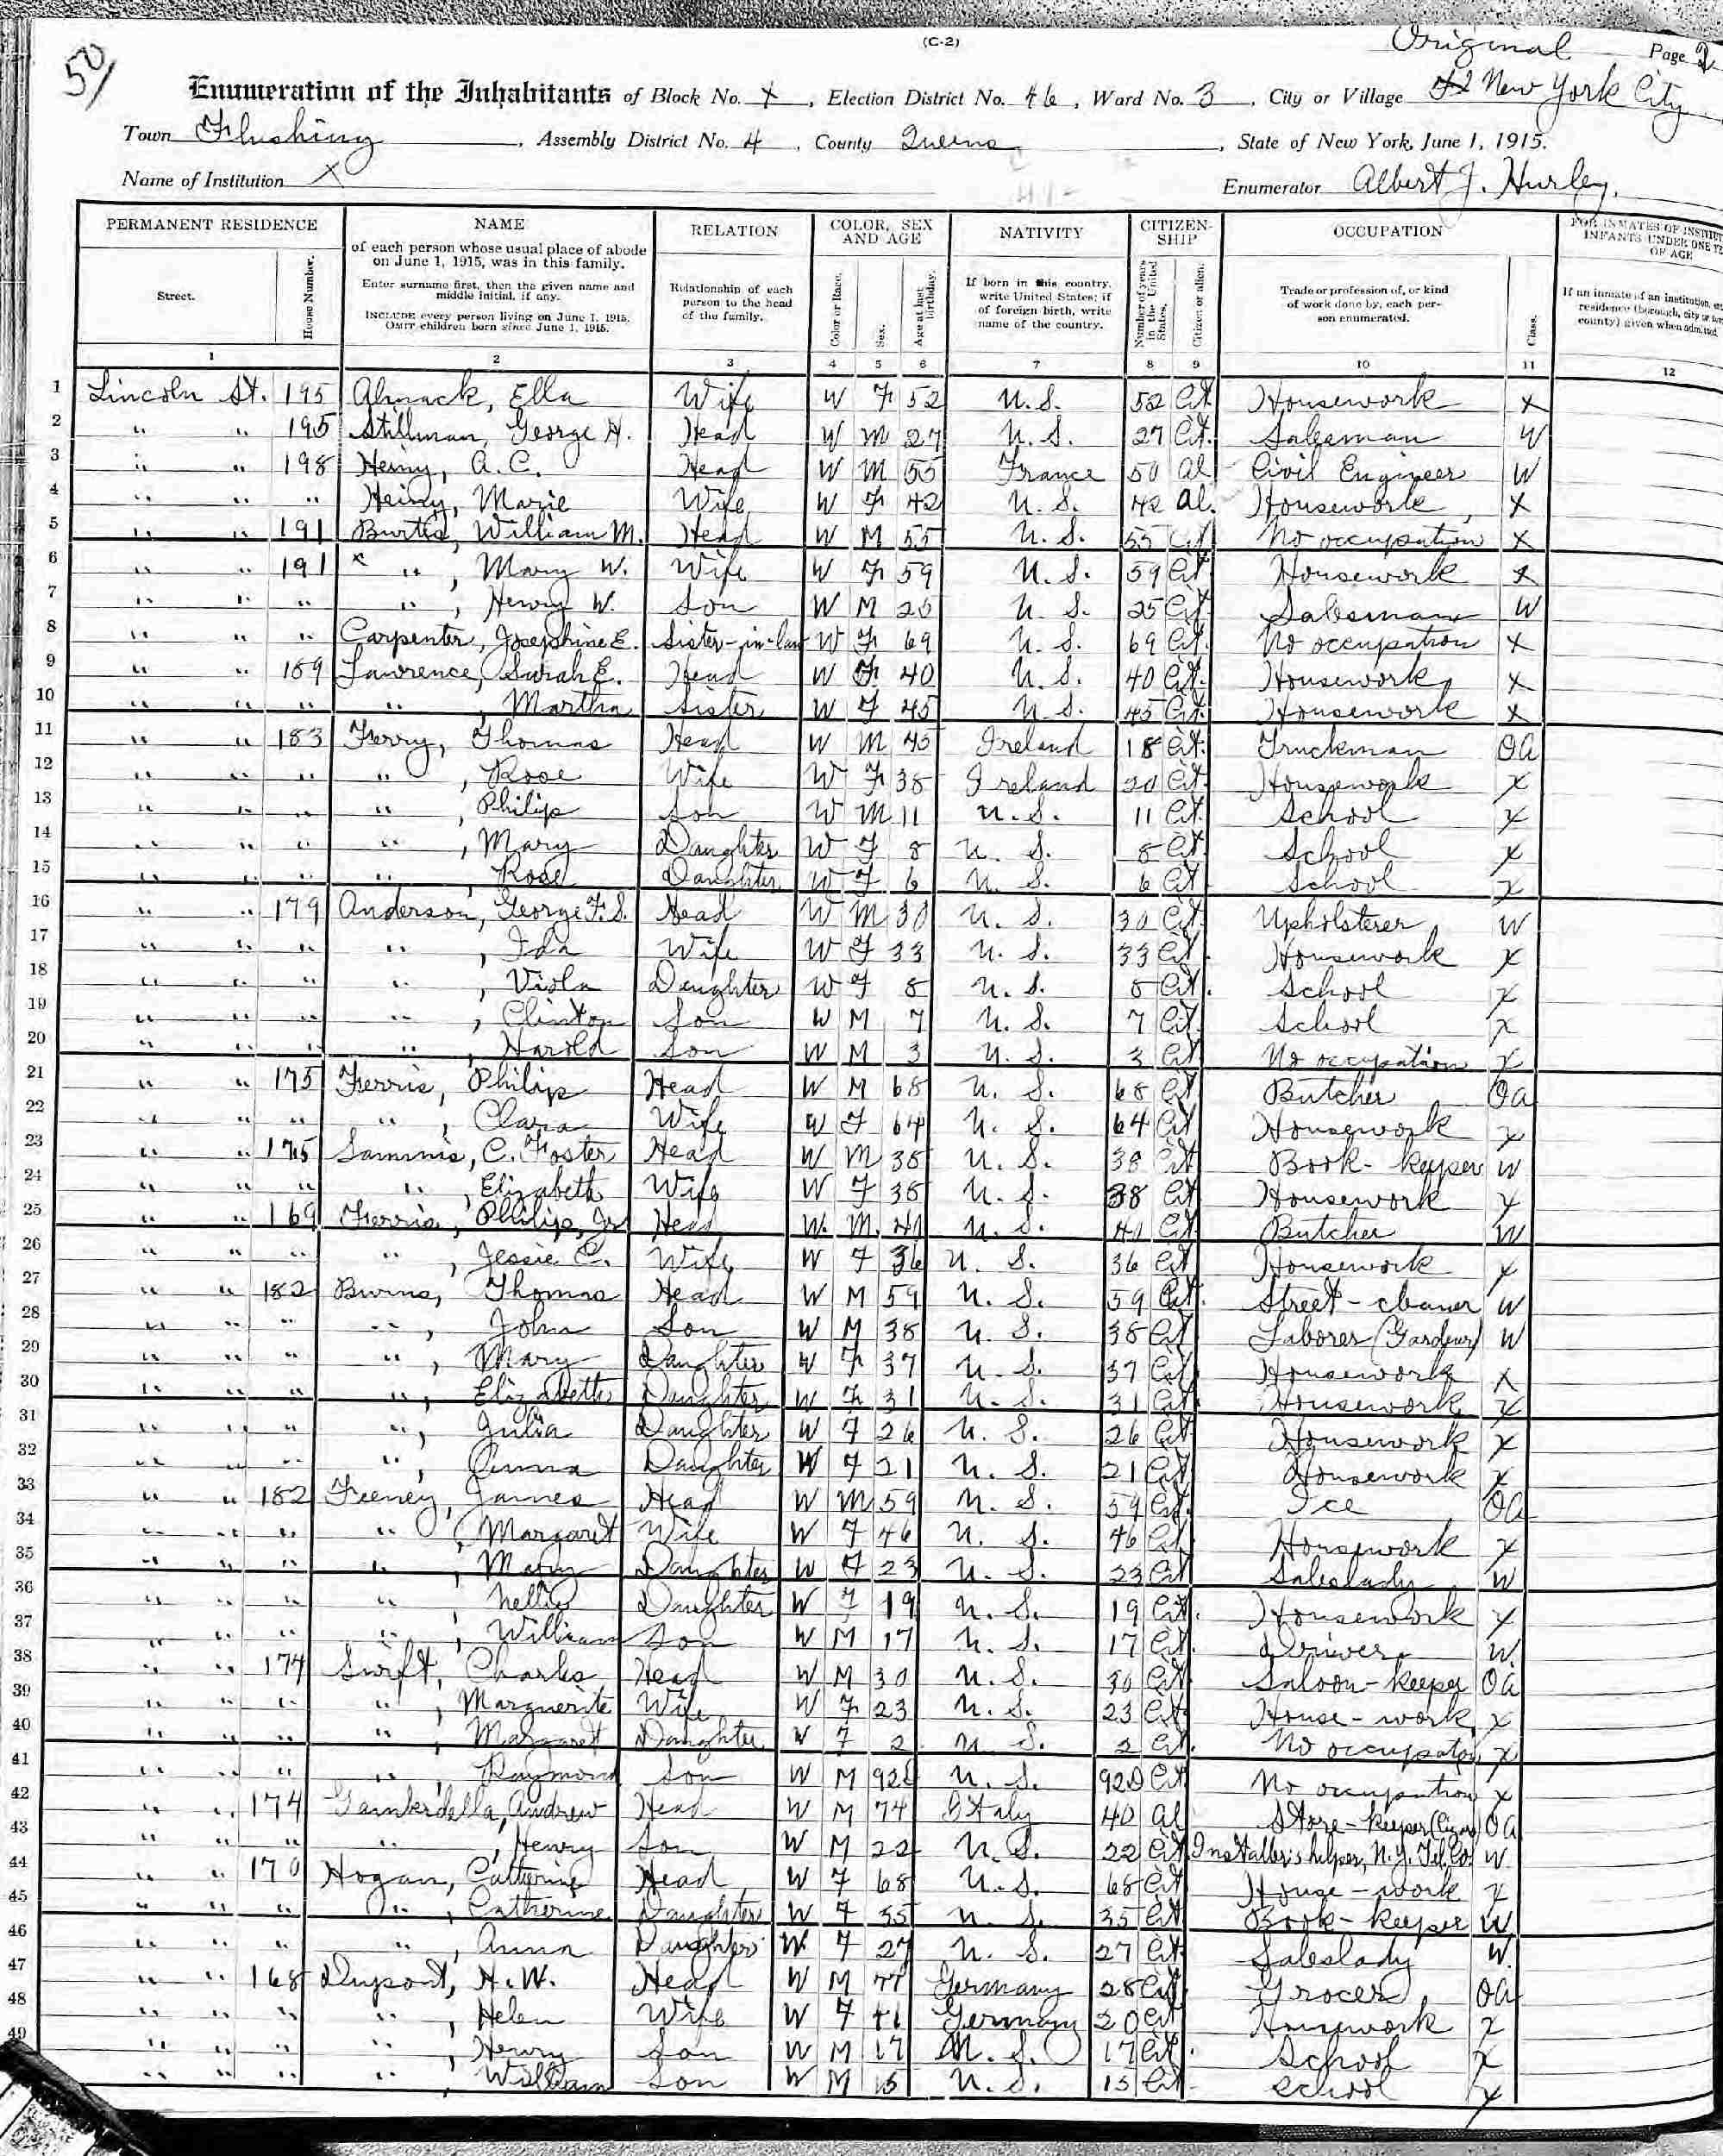 50
(C-2)
Original Page 2
Enumeration of the Inhabitants of Block No. X, Election District No. 46, Ward No. 3, City or Village New York City
Town Flushing, Assembly District No. 4, County Queens, State of New York, June 1, 1915.
Name of Institution X Enumerator Albert J. Hurley.
PERMANENT RESIDENCE NAME RELATION COLOR, SEX AND AGE NATIVITY CITIZEN-SHIP OCCUPATION FOR INMATES OF INSTITUT INFANTS UNDER ONE YE OF AGE
Street. House Number. of each person whose usual place of abode on June 1, 1915, was in this family. Enter surname first, then the given name and middle initial, if any. INCLUDE every person living on June 1, 1915. OMIT children born since June 1, 1915. Relationship of each person to the head of the family. Color or Race. Sex. Age at last birthday. If born in this country, write United States; if of foreign birth, write name of the country. Number of years in the United States. Citizen or alien. Trade or profession of, or kind of work done by, each person enumerated. Class. If an inmate of an institution, residence (borough, city or county) given when admitted
1 2 3 4 5 6 7 8 9 10 11 12
1 Lincoln St. 195 Ella Wife W F 52 U.S. 52 Cit. Housework X
2 " " 195 Stillman, George H. Head W M 27 U.S. 27 Cit. Salesman W
3 " " 198 Heiny, A. C. Head W M 55 France 50 Al Civil Engineer W
4 " " " Heiny, Marie Wife W F 42 U.S. 42 Al. Housework X
5 " " 191 Burtis, William M. Head W M 55 U.S. 55 Cit No occupation X
6 " " 191 X " , Mary W. Wife W F 59 U.S. 59 Cit. Housework X
7 " " " " , Henry W. Son W M 25 U.S. 25 Cit. Salesman W
8 " " " Carpenter, Josephine E. Sister-in-law W F 69 U.S. 69 Cit. No occupation X
9 " " 189 Lawrence, Sarah E. Head W F 40 U.S. 40 Cit. Housework X
10 " " " " , Martha Sister W F 45 U.S. 45 Cit. Housework X
11 " " 183 Ferry, Thomas Head W M 45 Ireland 18 Cit. Truckman OA
12 " " " " , Rose Wife W F 38 Ireland 20 Cit. Housework X
13 " " " " , Philip Son W M 11 U.S. 11 Cit. School X
14 " " " " , Mary Daughter W F 8 U.S. 8 Cit. School X
15 " " " " , Rose Daughter W F 6 U.S. 6 Cit School X
16 " " 179 Anderson, George F. S. Head W M 30 U.S. 30 Cit. Upholsterer W
17 " " " " , Ida Wife W F 33 U.S. 33 Cit. Housework X
18 " " " " , Viola Daughter W F 8 U.S. 8 Cit. School X
19 " " " " , Clinton Son W M 7 U.S. 7 Cit. School X
20 " " " " , Harold Son W M 3 U.S. 3 Cit No occupation X
21 " " 175 Ferris, Philip Head W M 68 U.S. 68 Cit Butcher OA
22 " " " " , Clara Wife W F 64 U.S. 64 Cit Housework X
23 " " 175 Sammis, C. Foster Head W M 38 U.S. 38 Cit Book-keeper W
24 " " " " , Elizabeth Wife W F 38 U.S. 38 Cit Housework X
25 " " 169 Ferris, Philip, Jr Head W. M. 41 U.S. 41 Cit. Butcher W
26 " " " " , Jessie C. Wife W F 36 U.S. 36 Cit Housework X
27 " " 182 Burns, Thomas Head W M 59 U.S. 59 Cit. Street-cleaner W
28 " " " " , John Son W M 38 U.S. 38 Cit Laborer (Gardener) W
29 " " " " , Mary Daughter W F 37 U.S. 37 Cit Housework X
30 " " " " , Elizabeth Daughter W F 31 U.S. 31 Cit. Housework X
31 " " " " , Julia Daughter W F 26 U.S. 26 Cit Housework X
32 " " " " , Anna Daughter W F 21 U.S. 21 Cit Housework X
33 " " 182 Feeney, James Head W M 59 U.S. 59 Cit. Ice OA
34 " " " " , Margaret Wife W F 46 U.S. 46 Cit Housework X
35 " " " " , Mary Daughter W F 23 U.S. 23 Cit Saleslady W
36 " " " " , Nellie Daughter W F 19 U.S. 19 Cit. Housework X
37 " " " " , William Son W M 17 U.S. 17 Cit. Driver W.
38 " " 174 Swift, Charles Head W M 30 U.S. 30 Cit. Saloon-keeper OA
39 " " " " , Marguerite Wife W F 23 U.S. 23 Cit. House-work X
40 " " " " , Margaret Daughter W F 2 U.S. 2 Cit. No occupation X
41 " " " " , Raymond Son W M U.S. Cit No occupation X
42 " " 174 Andrew Head W M 74 Italy 40 Al Store-keeper (Cigar) OA
43 " " " " , Henry Son W M 22 U.S. 22 Cit Installer's helper, N.Y. Tel. Co. W
44 " " 170 Hogan, Catherine Head W F 68 U.S. 68 Cit House-work X
45 " " " " , Catherine Daughter W F 35 U.S. 35 Cit Book-keeper W
46 " " " " , Anna Daughter W. F 27 U.S. 27 Cit. Saleslady W.
47 " " 168 Dupont, H. W. Head W M Germany 28 Cit. Grocer OA
48 " " " " , Helen Wife W F 41 Germany 20 Cit Housework X
49 " " " " , Henry Son W M 17 U.S. 17 Cit. School X
" " " " , William Son W M 15 U.S. 15 Cit. School X